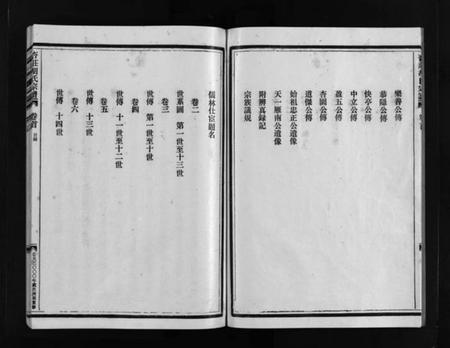 樂善公傳
恭陽公傳
快亭公傳
中立公傳
盈五公傳
杏園公傳
道傑公傳
始祖忠正公遺像
天一雁南公遺像
附辨真録記
宗族議規
儒林仕宦題名
卷二
世系圖 第一世至十三世
卷三
世傳 第一世至十世
卷四
世傳 十一世至十二世
卷五
世傳 十三世
卷六
世傳 十四世
杏莊胡氏宗譜 卷首 目録